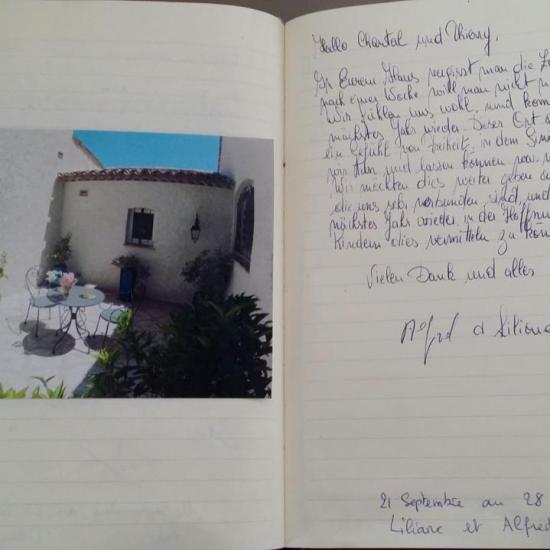 Hallo Chantal und Thierry,
In Eurem Haus vergisst man die Ze
nach einer Woche will man nicht m
Wir fühlen uns wohl, und kom
nächstes Jahr wieder. Dieser Ort
ein Gefühl von Freiheit, in dem Sinn
von tun und lassen können was
Wir möchten dies weiter geben
die uns sehr verbunden sind, und
nächstes Jahr wieder in der Hoffnu
Kindern dies vermitteln zu kön
Vielen Dank und alles
Alfred
21 Septembre au 28
Liliane et Alfred